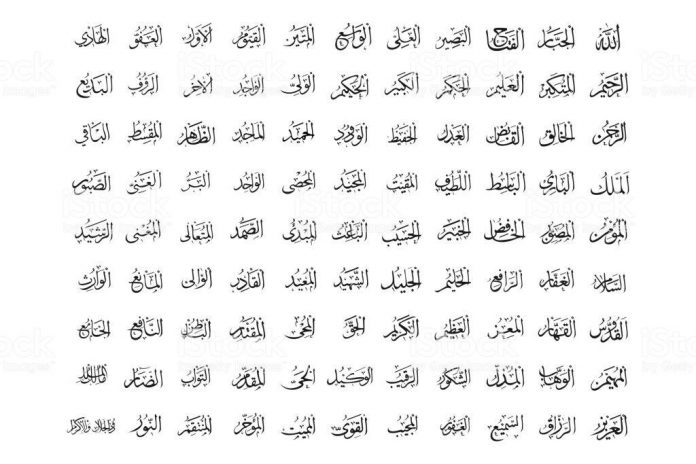 الله الجبار الفتاح البصير العلي الواسع المتين القيوم الأول العفو الهادي
الرحيم المتكبر العليم الحكم الكبير الحكيم الولي الواجد الآخر الرؤف البديع
الرحمن الخالق القابض العدل الحفيظ الودود الحميد الماجد الظاهر المقسط الباقي
الملك البارئ الباسط اللطيف المقيت المجيد المحصي الواحد البر الغني الصبور
المؤمن المصور الخافض الخبير الحسيب الباعث المبدئ الصمد المتعالي المغني الرشيد
السلام الغفار الرافع الحليم الجليل الشهيد المعيد القادر الوالي المانع الوارث
القدوس القهار المعز العظيم الكريم الحق المحيي المقتدر الباطن النافع الجامع
المهيمن الوهاب المذل الشكور الرقيب الوكيل الحي المقدم التواب الضار مالك الملك
العزيز الرزاق السميع الغفور المجيب القوي المميت المؤخر المنتقم النور ذو الجلال والإكرام